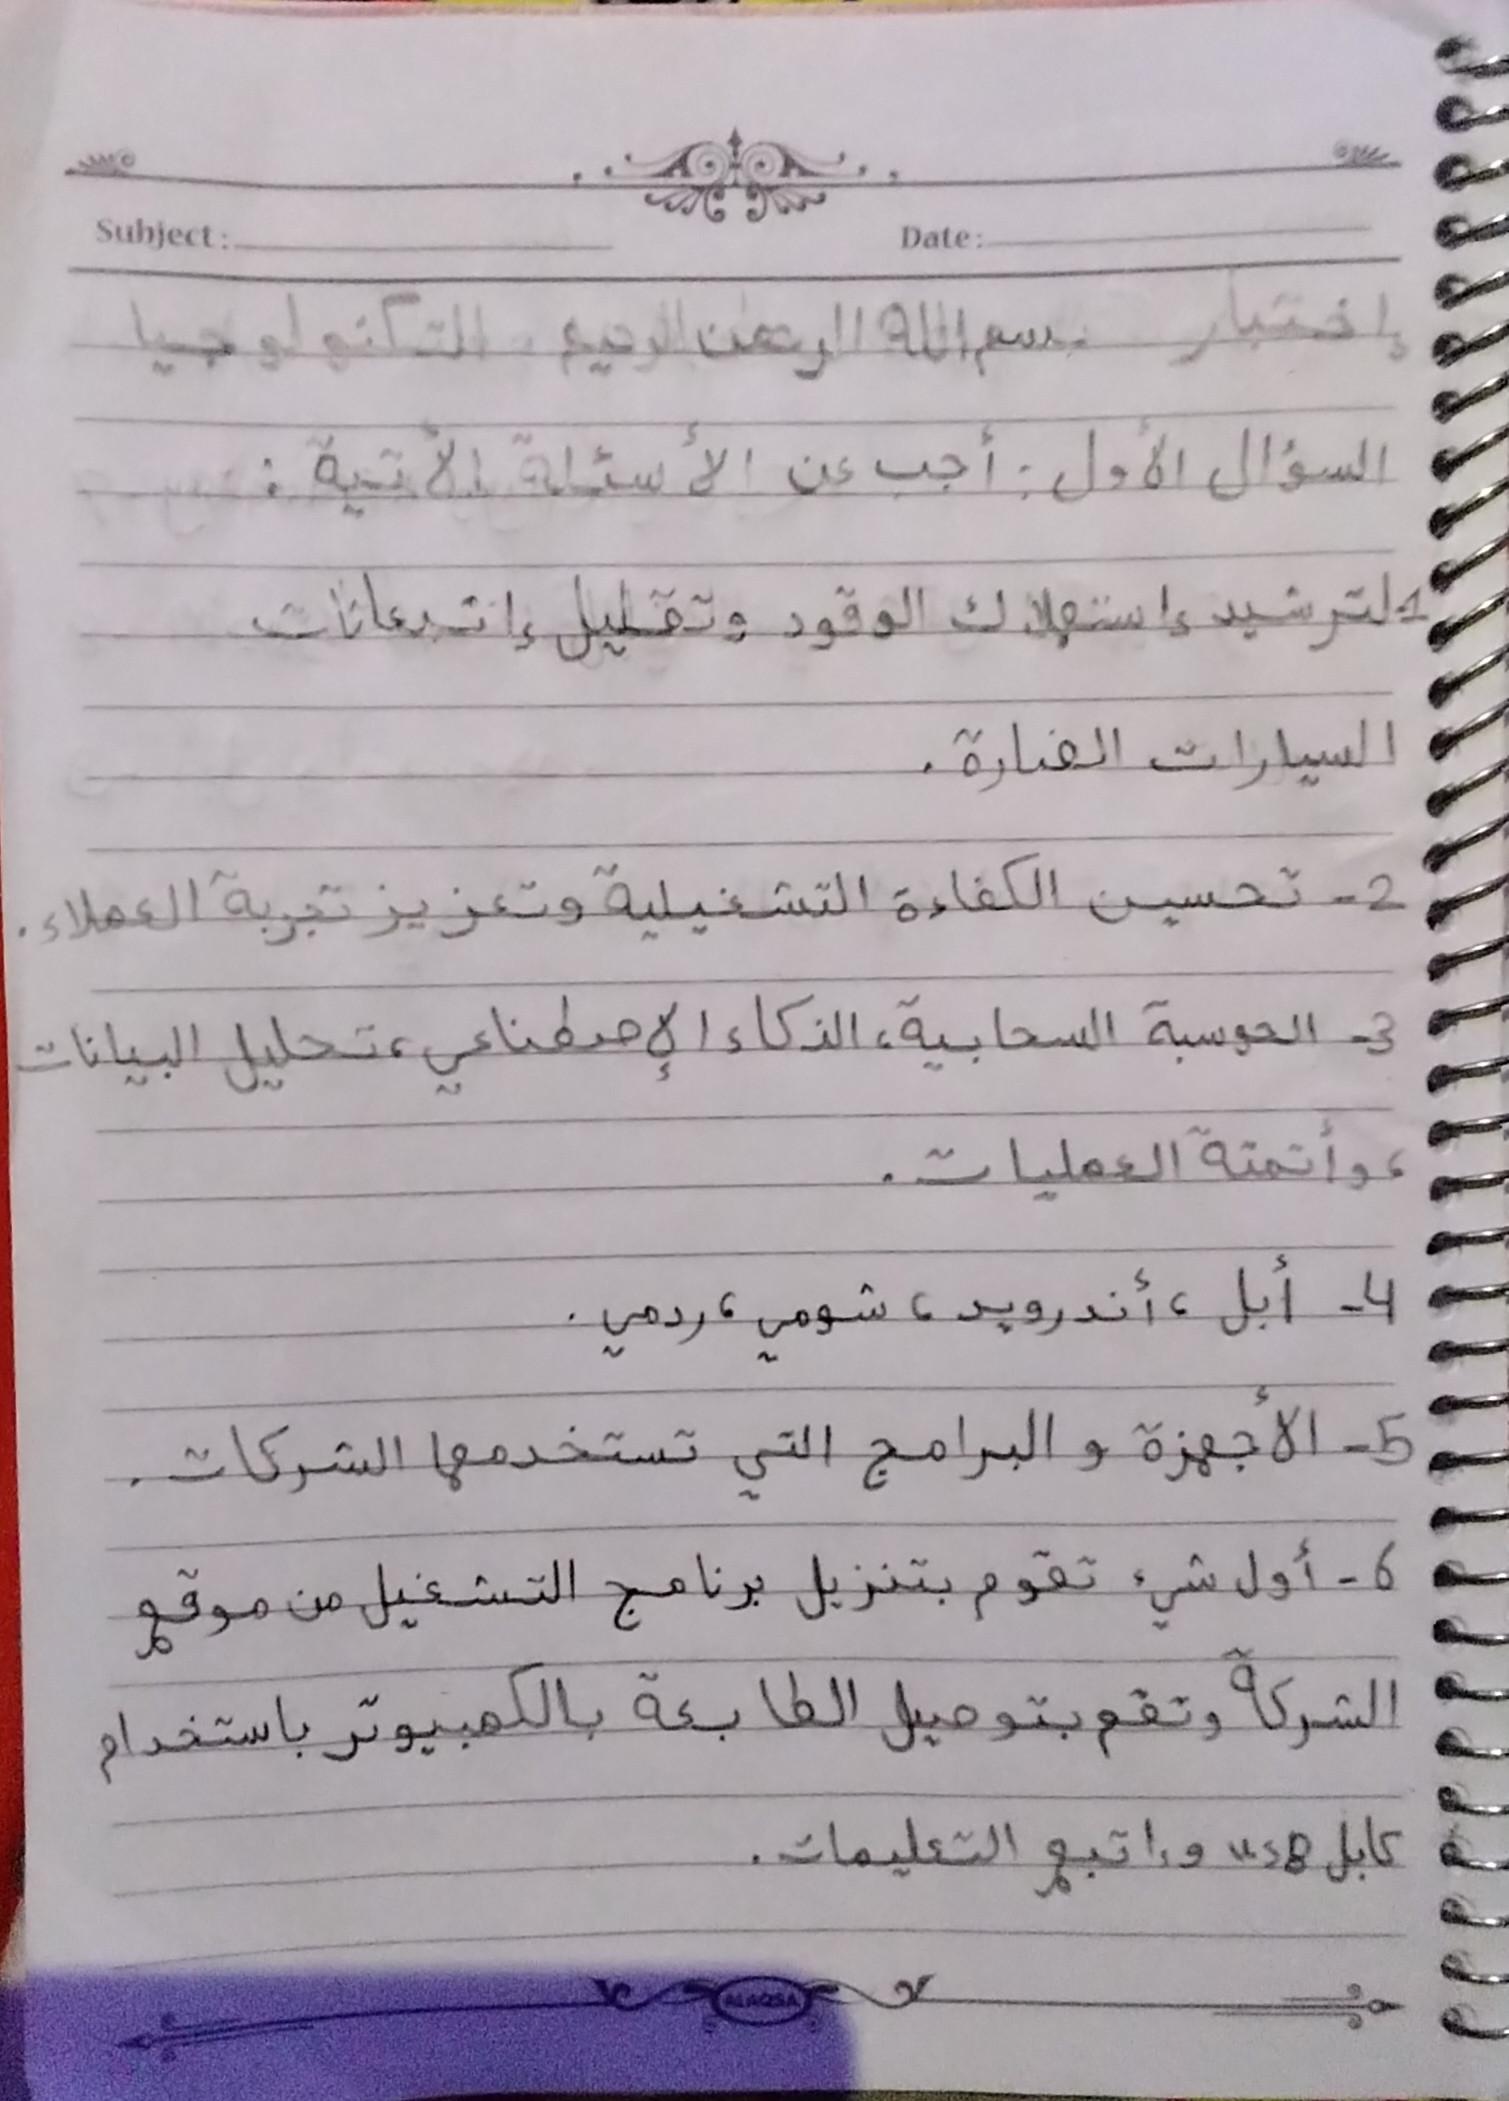 Subject: Date:
إختبار بسم الله الرحمن الرحيم التكنولوجيا
السؤال الأول: أجب عن الأسئلة الأتية:
1- لترشيد إستهلاك الوقود وتقليل إنبعاثات
السيارات الضارة.
2- تحسين الكفاءة التشغيلية وتعزيز تجربة العملاء.
3- الحوسبة السحابية، الذكاء الإصطناعي، تحليل البيانات
، وأتمتة العمليات.
4- أبل، أندرويد، شومي، ردمي.
5- الأجهزة و البرامج التي تستخدمها الشركات.
6- أول شيء تقوم بتنزيل برنامج التشغيل من موقع
الشركة وتقم بتوصيل الطابعة بالكمبيوتر باستخدام
كابل usB وإتبع التعليمات.
ALAQSA